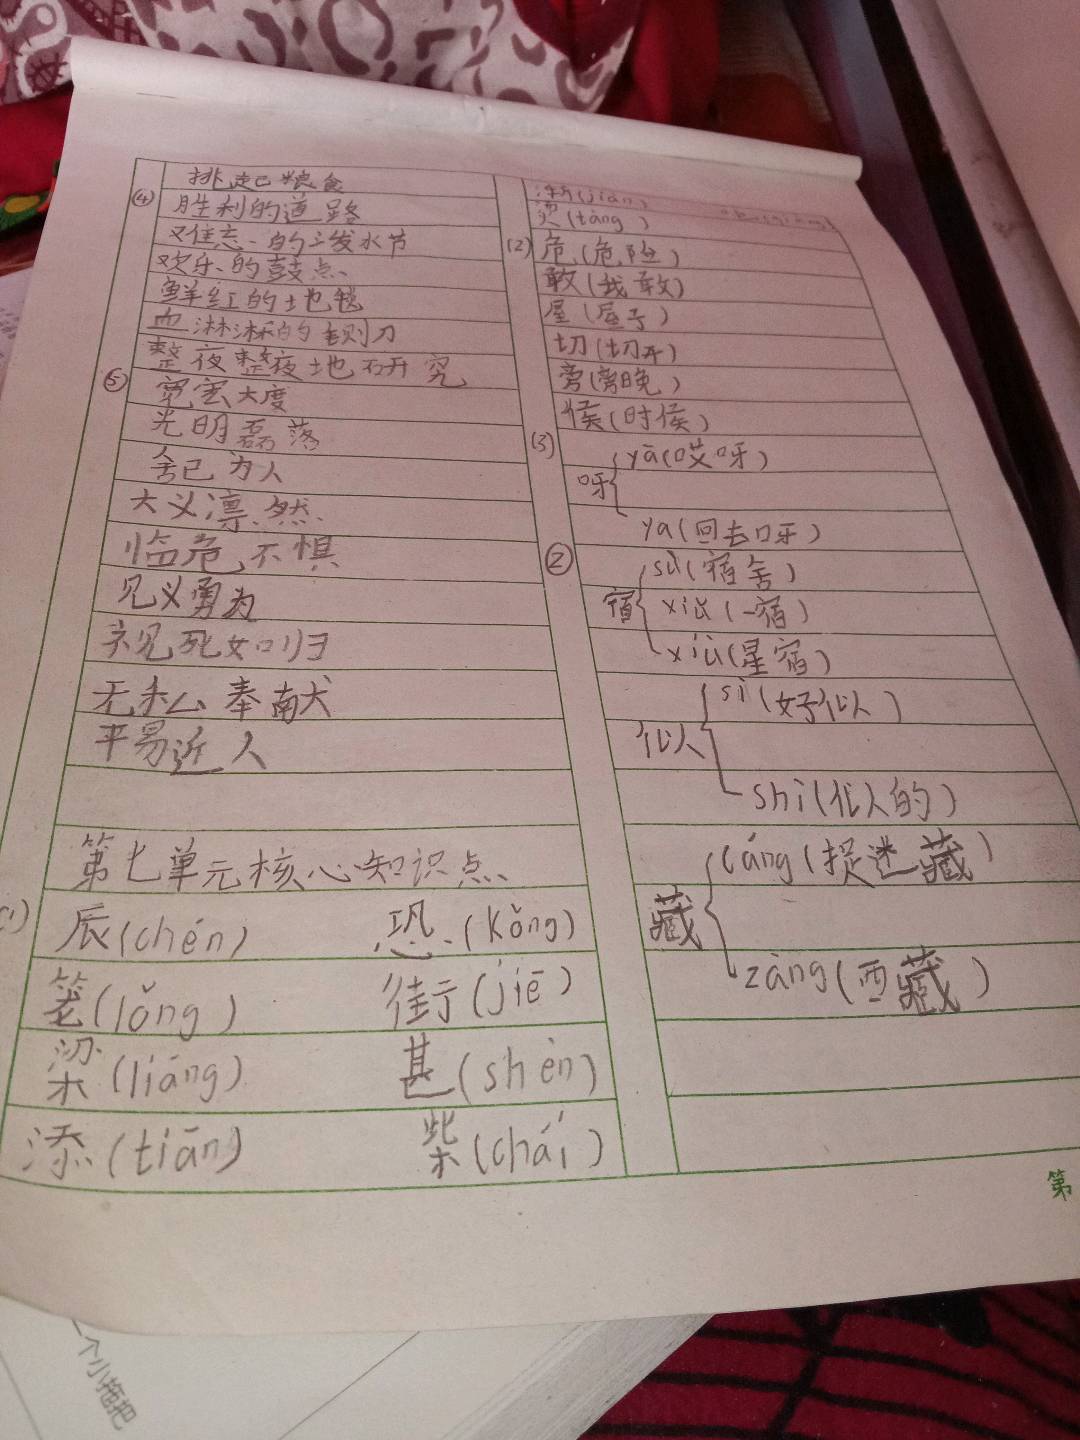 挑起粮食
④ 胜利的道路
难忘的泼水节
欢乐的鼓点
鲜红的地毯
血淋淋的铡刀
整夜整夜地研究
⑤ 宽宏大度
光明磊落
舍己为人
大义凛然
临危不惧
见义勇为
视死如归
无私奉献
平易近人
第七单元核心知识点
(1) 辰(chén) 恐(kǒng)
笼(lǒng) 街(jiē)
梁(liáng) 甚(shèn)
添(tiān) 柴(chái)
(jiàn)
烫(tàng)
(2) 危(危险)
敢(我敢)
屋(屋子)
切(切开)
旁(旁晚)
候(时候)
(3) 呀 yā(哎呀)
ya(回去呀)
② 宿 sù(宿舍)
xiǔ(一宿)
xiù(星宿)
似 sì(好似)
shì(似的)
藏 cáng(捉迷藏)
zàng(西藏)
第
一个小拖把